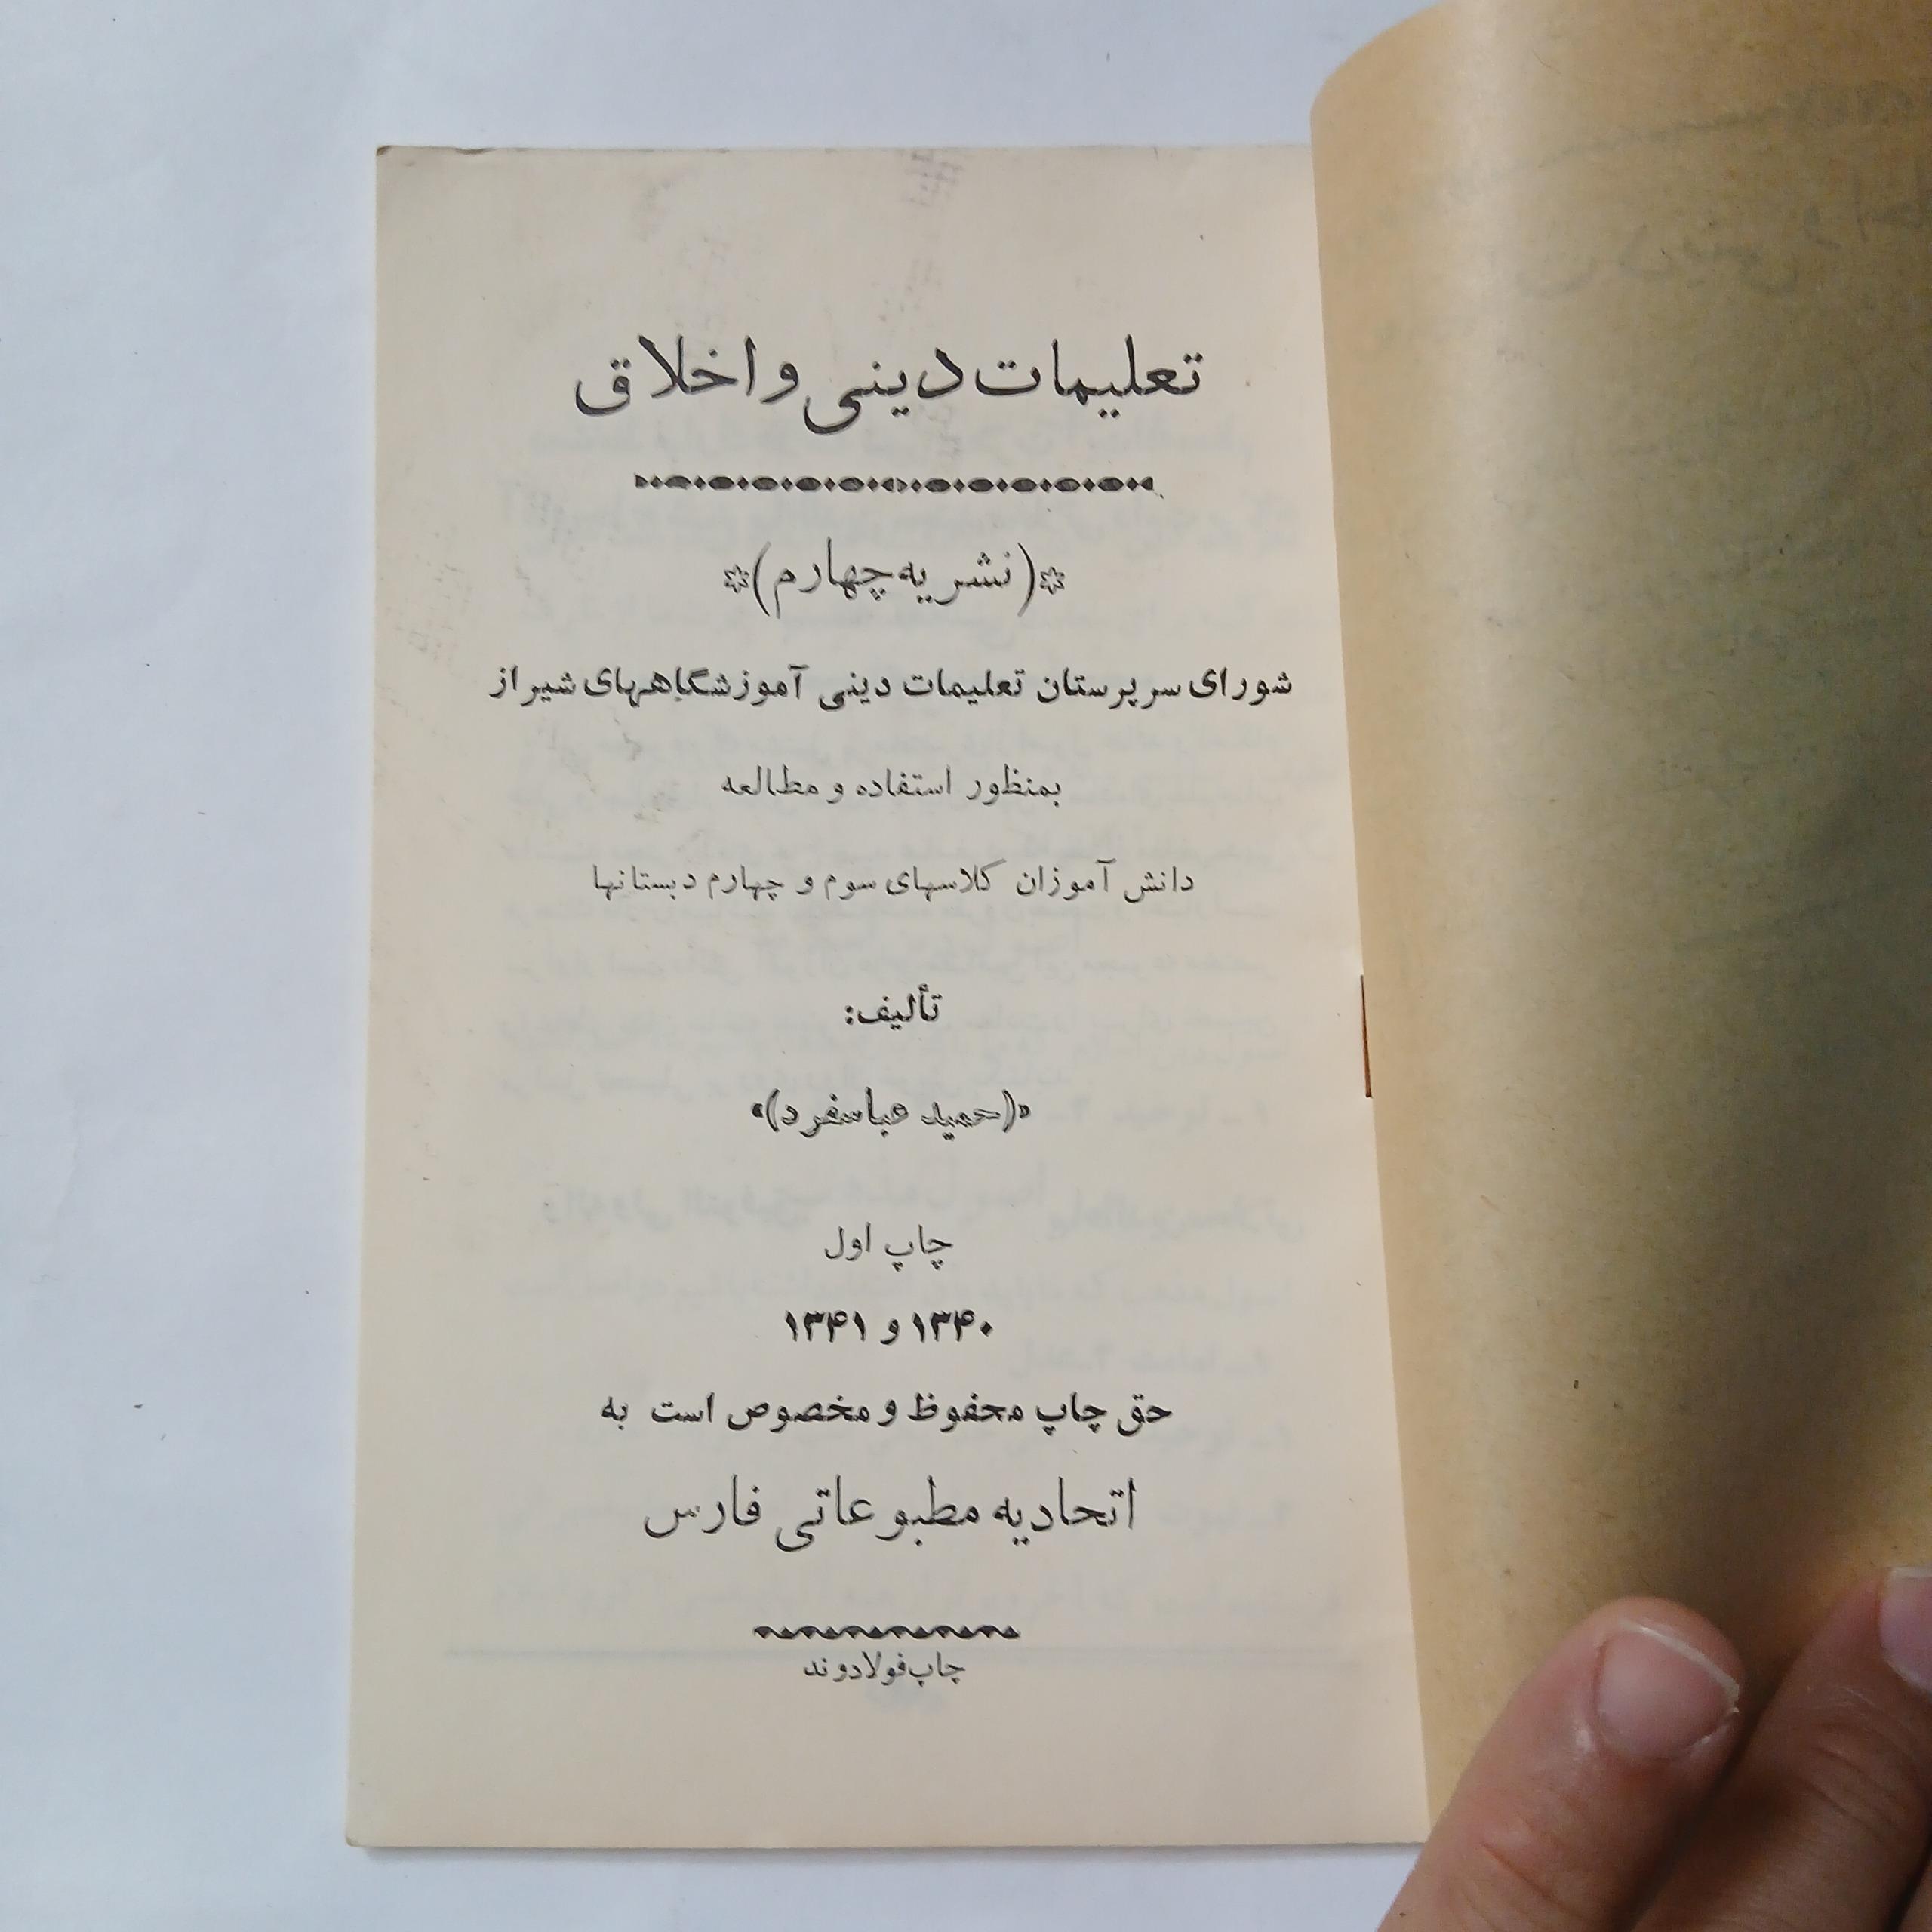 تعلیمات دینی و اخلاق
(نشریه چهارم)
شورای سرپرستان تعلیمات دینی آموزشگاههای شیراز
بمنظور استفاده و مطالعه
دانش آموزان کلاسهای سوم و چهارم دبستانها
تألیف:
«(حمید عباسفرد)»
چاپ اول
۱۳۴۰ و ۱۳۴۱
حق چاپ محفوظ و مخصوص است به
اتحادیه مطبوعاتی فارس
چاپ فولادوند